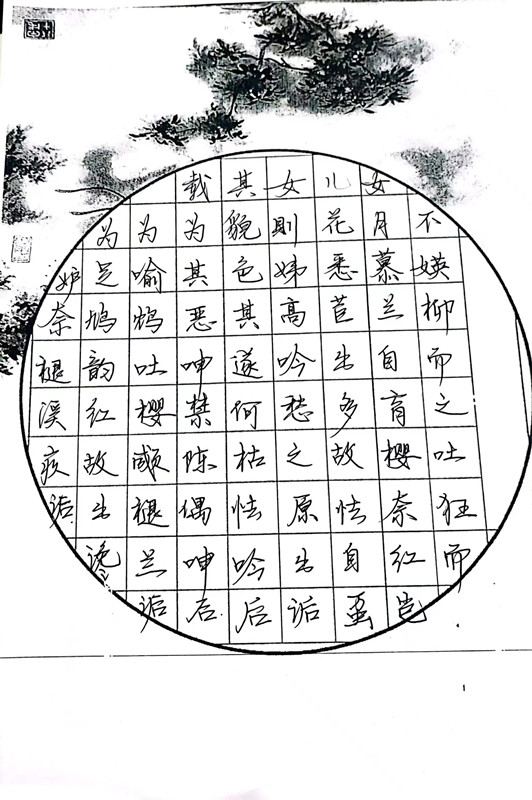 载其女儿女
为为为貌则花月不
妒足喻其色娣悉慕媖
奈鸠鸩恶其高苣兰柳
褪韵吐呻遂吟出自而
溪红樱禁何愁多育之
疾故顑陈枯之故樱吐
诟出褪偶怯原怯奈狂
谗兰呻吟出自红而
诟后后诟虿岂
1